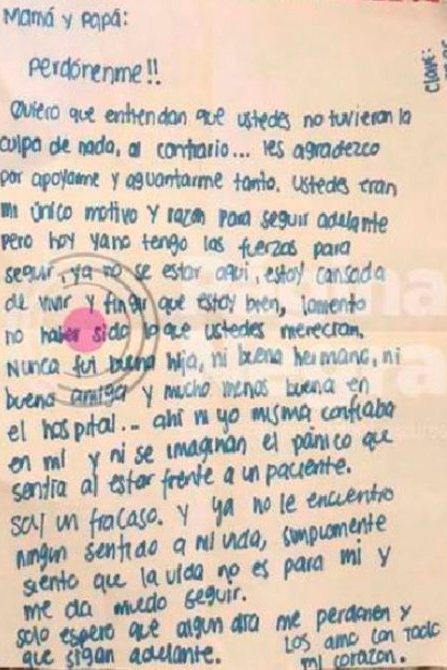 Mamá y Papá:
Perdónenme!!
CLAVE:
Quiero que entiendan que ustedes no tuvieron la
culpa de nada, al contrario... les agradezco
por apoyarme y aguantarme tanto. Ustedes eran
mi único motivo y razón para seguir adelante
pero hoy ya no tengo las fuerzas para
seguir, ya no se estar aquí, estoy cansada
de vivir y fingir que estoy bien, lamento
no haber sido lo que ustedes merecían.
Nunca fui buena hija, ni buena hermana, ni
buena amiga y mucho menos buena en
el hospital... ahí ni yo misma confiaba
en mí y ni se imaginan el pánico que
sentía al estar frente a un paciente.
soy un fracaso. y ya no le encuentro
ningún sentido a mi vida, simplemente
siento que la vida no es para mi y
me da miedo seguir.
solo espero que algun día me perdonen y
que sigan adelante.
Los amo con todo
mi corazón.